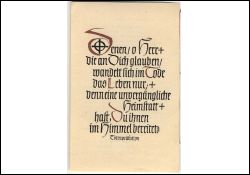 Denen/o Herr+
die an Dich glauben/
wandelt sich im Tode
das Leben nur/+
denn eine unvergängliche
Heimstatt+
hast Du ihnen
im Himmel bereitet
Totenpräfation